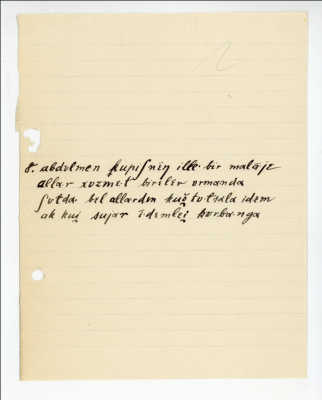 8. abdulmen kupisnen ille bir malaje
allar xuzmet bireler urmanda
sulda bel allarden kuš tutsala idem
ak kuj sujar idemlej kurbanga